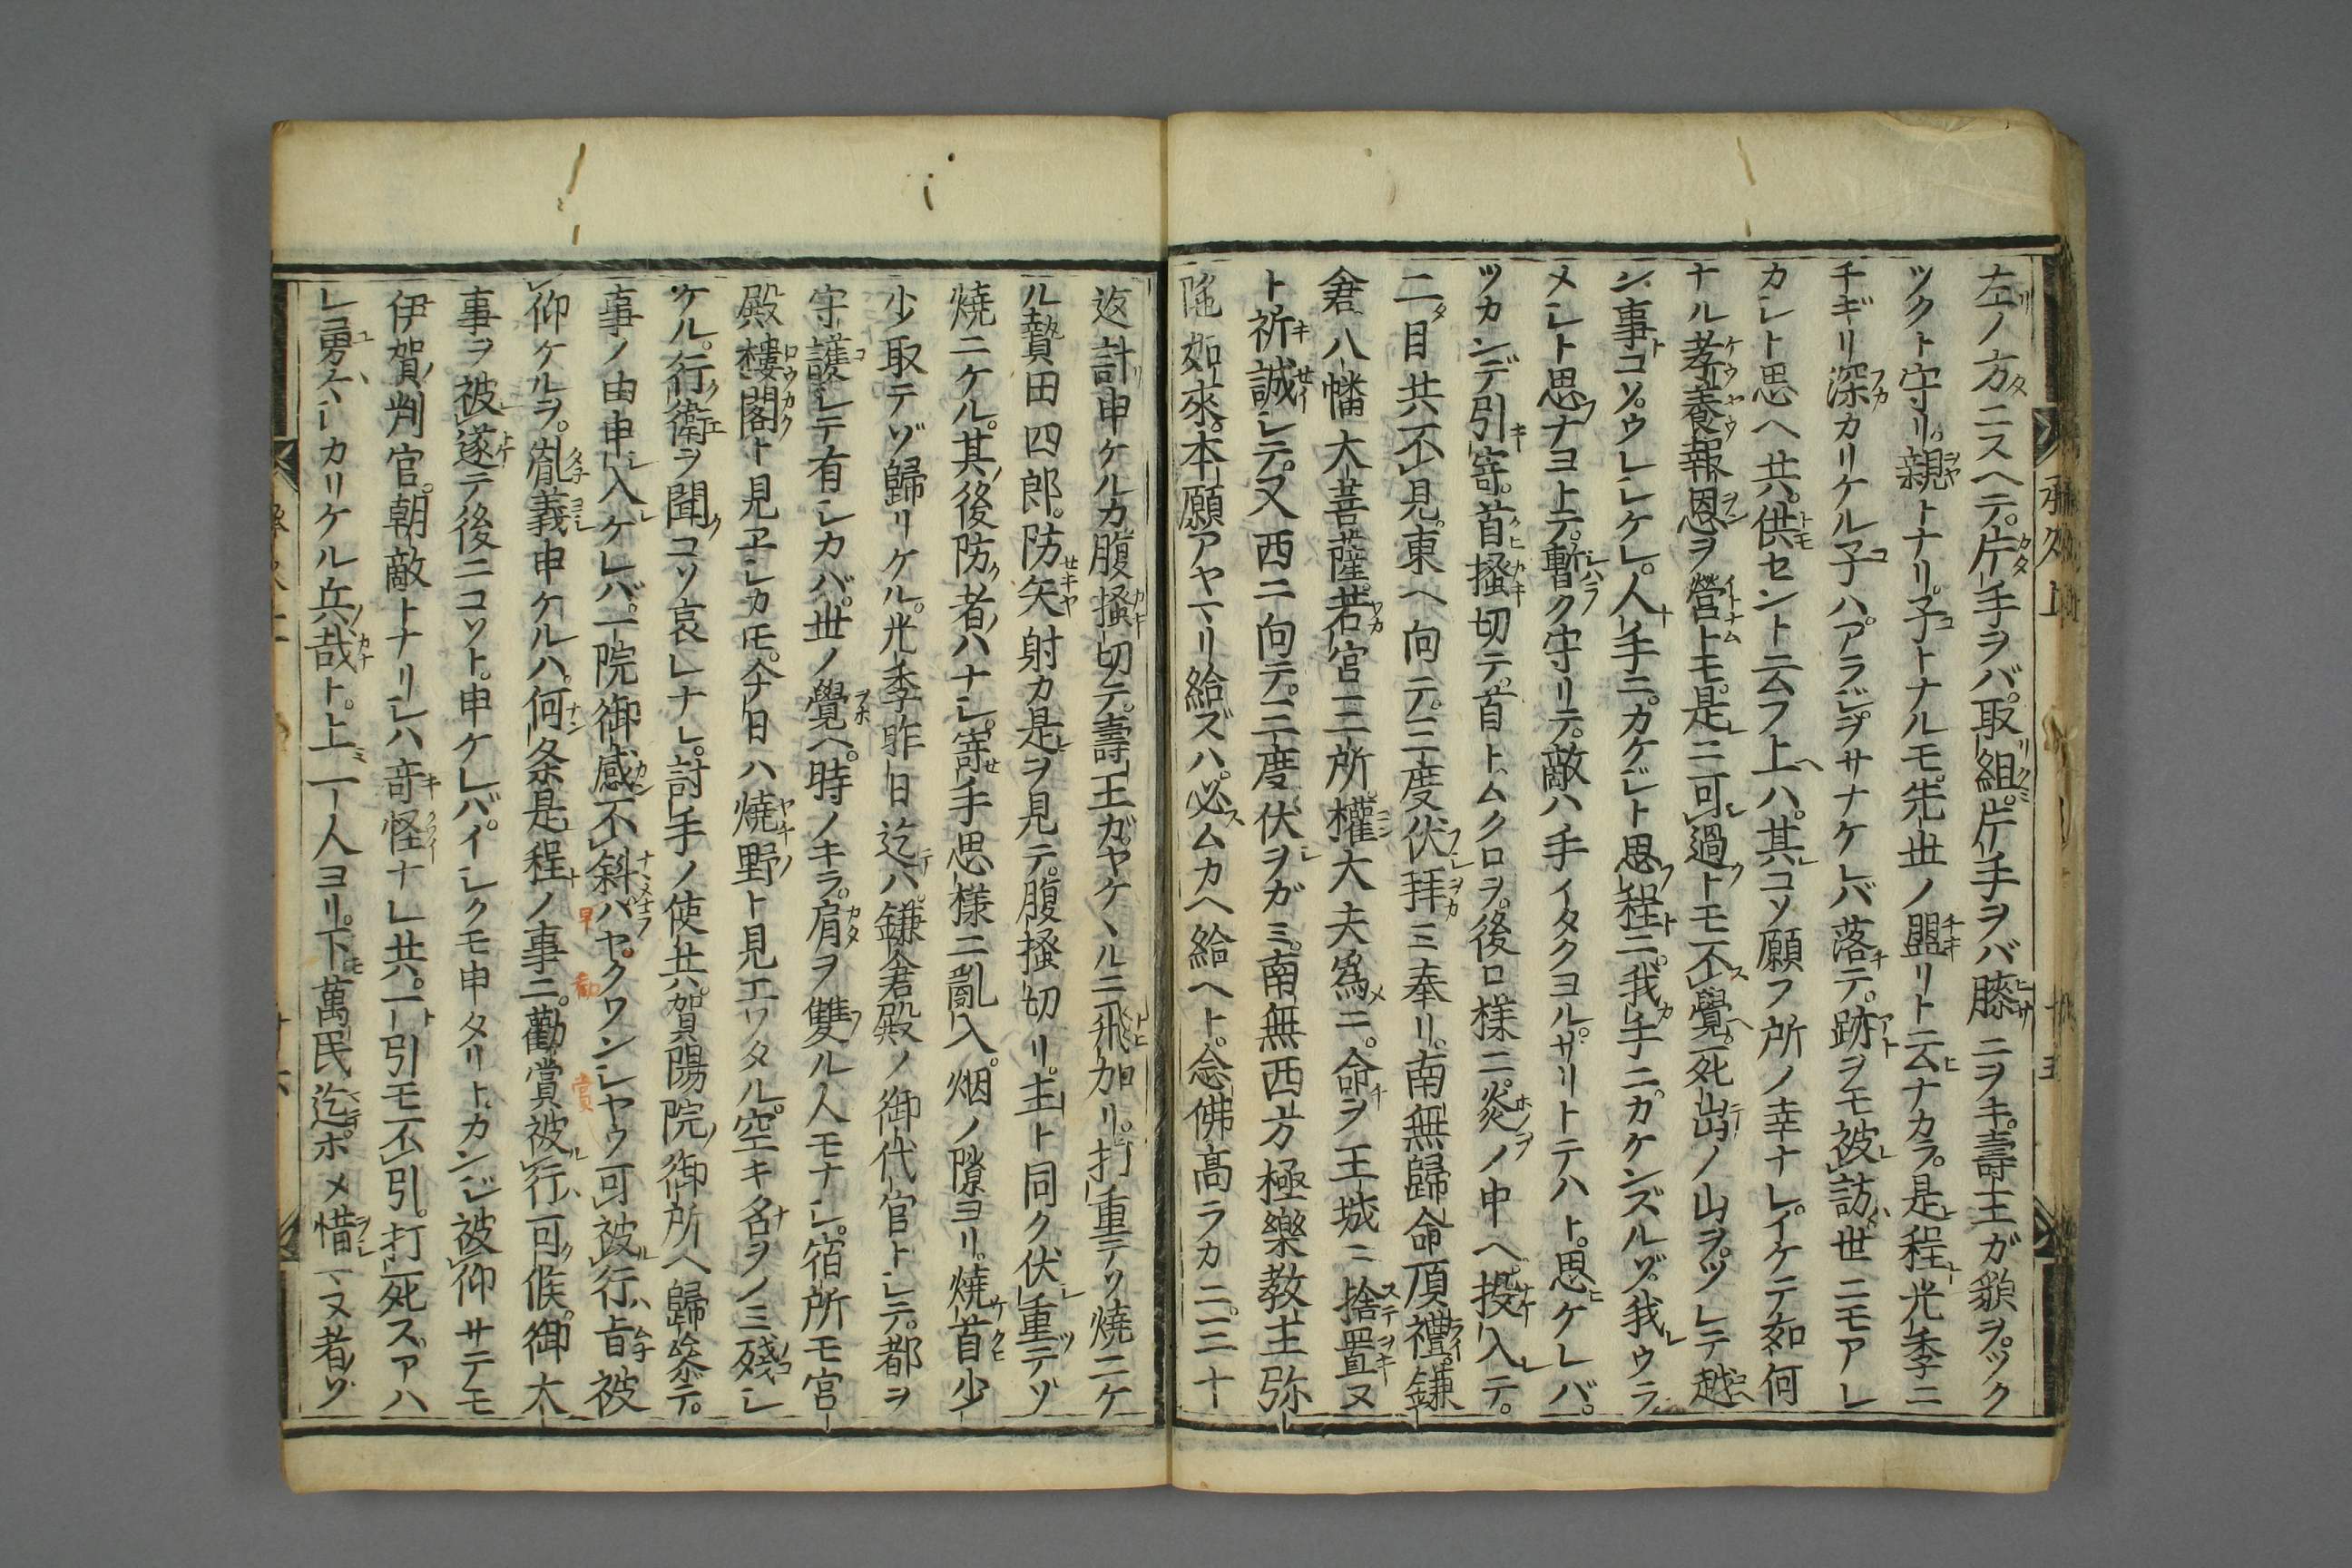 左ノ方ニスヘテ。片手ヲバ。取組。片手ヲバ膝ニヲキ。壽王ガ貌ヲ。ツク
ツクト守リ。親トナリ。子トナルモ。先世ノ盟リト云ナカラ。是程光季ニ
チギリ深カリケル子ハ。アラジ。ヲサナケレバ落テ。跡ヲモ被訪世ニモアレ
カレト思ヘ共。供セント云フ上ハ。其コソ願フ所ノ幸ナレ。イケテ如何
ナル孝養報恩ヲ營トモ。是ニ可過トモ不覺。死出ノ山ヲ。ツレテ越
ン事コソ。ウレシケレ。人手ニ。カケジト思程ニ。我手ニ。カケンズルゾ。我ウラ
メシト思ナヨトテ。暫ク守リテ。敵ハ手イタクヨル。サリトテハト。思ケレバ。
ツカンデ引寄。首搔切テ。首トムクロヲ。後ロ樣ニ。炎ノ中ヘ。投入テ。
二目共不見。東ヘ向テ。三度伏拜ミ奉リ。南無歸命頂禮。鎌
倉八幡大菩薩。若宮三所。權大夫爲ニ。命ヲ王城ニ捨置ヌ
ト祈誠シテ。又西ニ向テ。三度伏ヲガミ。南無西方極樂教主弥
陁如來。本願アヤマリ給ズハ。必ムカヘ給ヘト。念佛髙ラカニ。三十
返計申ケルカ。腹搔切テ。壽王ガ。ヤケヽルニ飛加リ。打重テソ燒ニケ
ル。贄田四郎。防矢射カ是ヲ見テ。腹搔切リ。主ト同ク伏重テゾ
燒ニケル。其後防者ハナシ。寄手思樣ニ亂入。烟ノ隙ヨリ。燒首少
少取テゾ歸リケル。光季昨日迄ハ。鎌倉殿ノ御代官トシテ。都ヲ
守護シテ有シカバ。世ノ覺ヘ。時ノキラ。肩ヲ雙ル人モナシ。宿所モ宮
殿樓閣ト見ヱシカモ。今日ハ燒野ト見エワタル。空キ名ヲノミ殘シ
ケル。行衛ヲ聞コソ哀レナレ。討手ノ使共。賀陽院御所ヘ歸參テ。
事ノ由申入ケレバ。一院御感不斜。ハヤ。クワンシヤウ可被行旨被
仰ケルヲ。胤義申ケルハ。何条是程ノ事ニ。勸賞被行可候。御大
事ヲ被遂テ後ニコソト。申ケレバ。イシクモ申タリト。カンジ被仰サテモ
伊賀判官。朝敵トナリシハ竒怪ナレ共。一引モ不引。打死ズアハ
レ勇ヽシカリケル兵哉ト。上一人ヨリ。下萬民迄ホメ惜マヌ者ソ
早 勸 賞